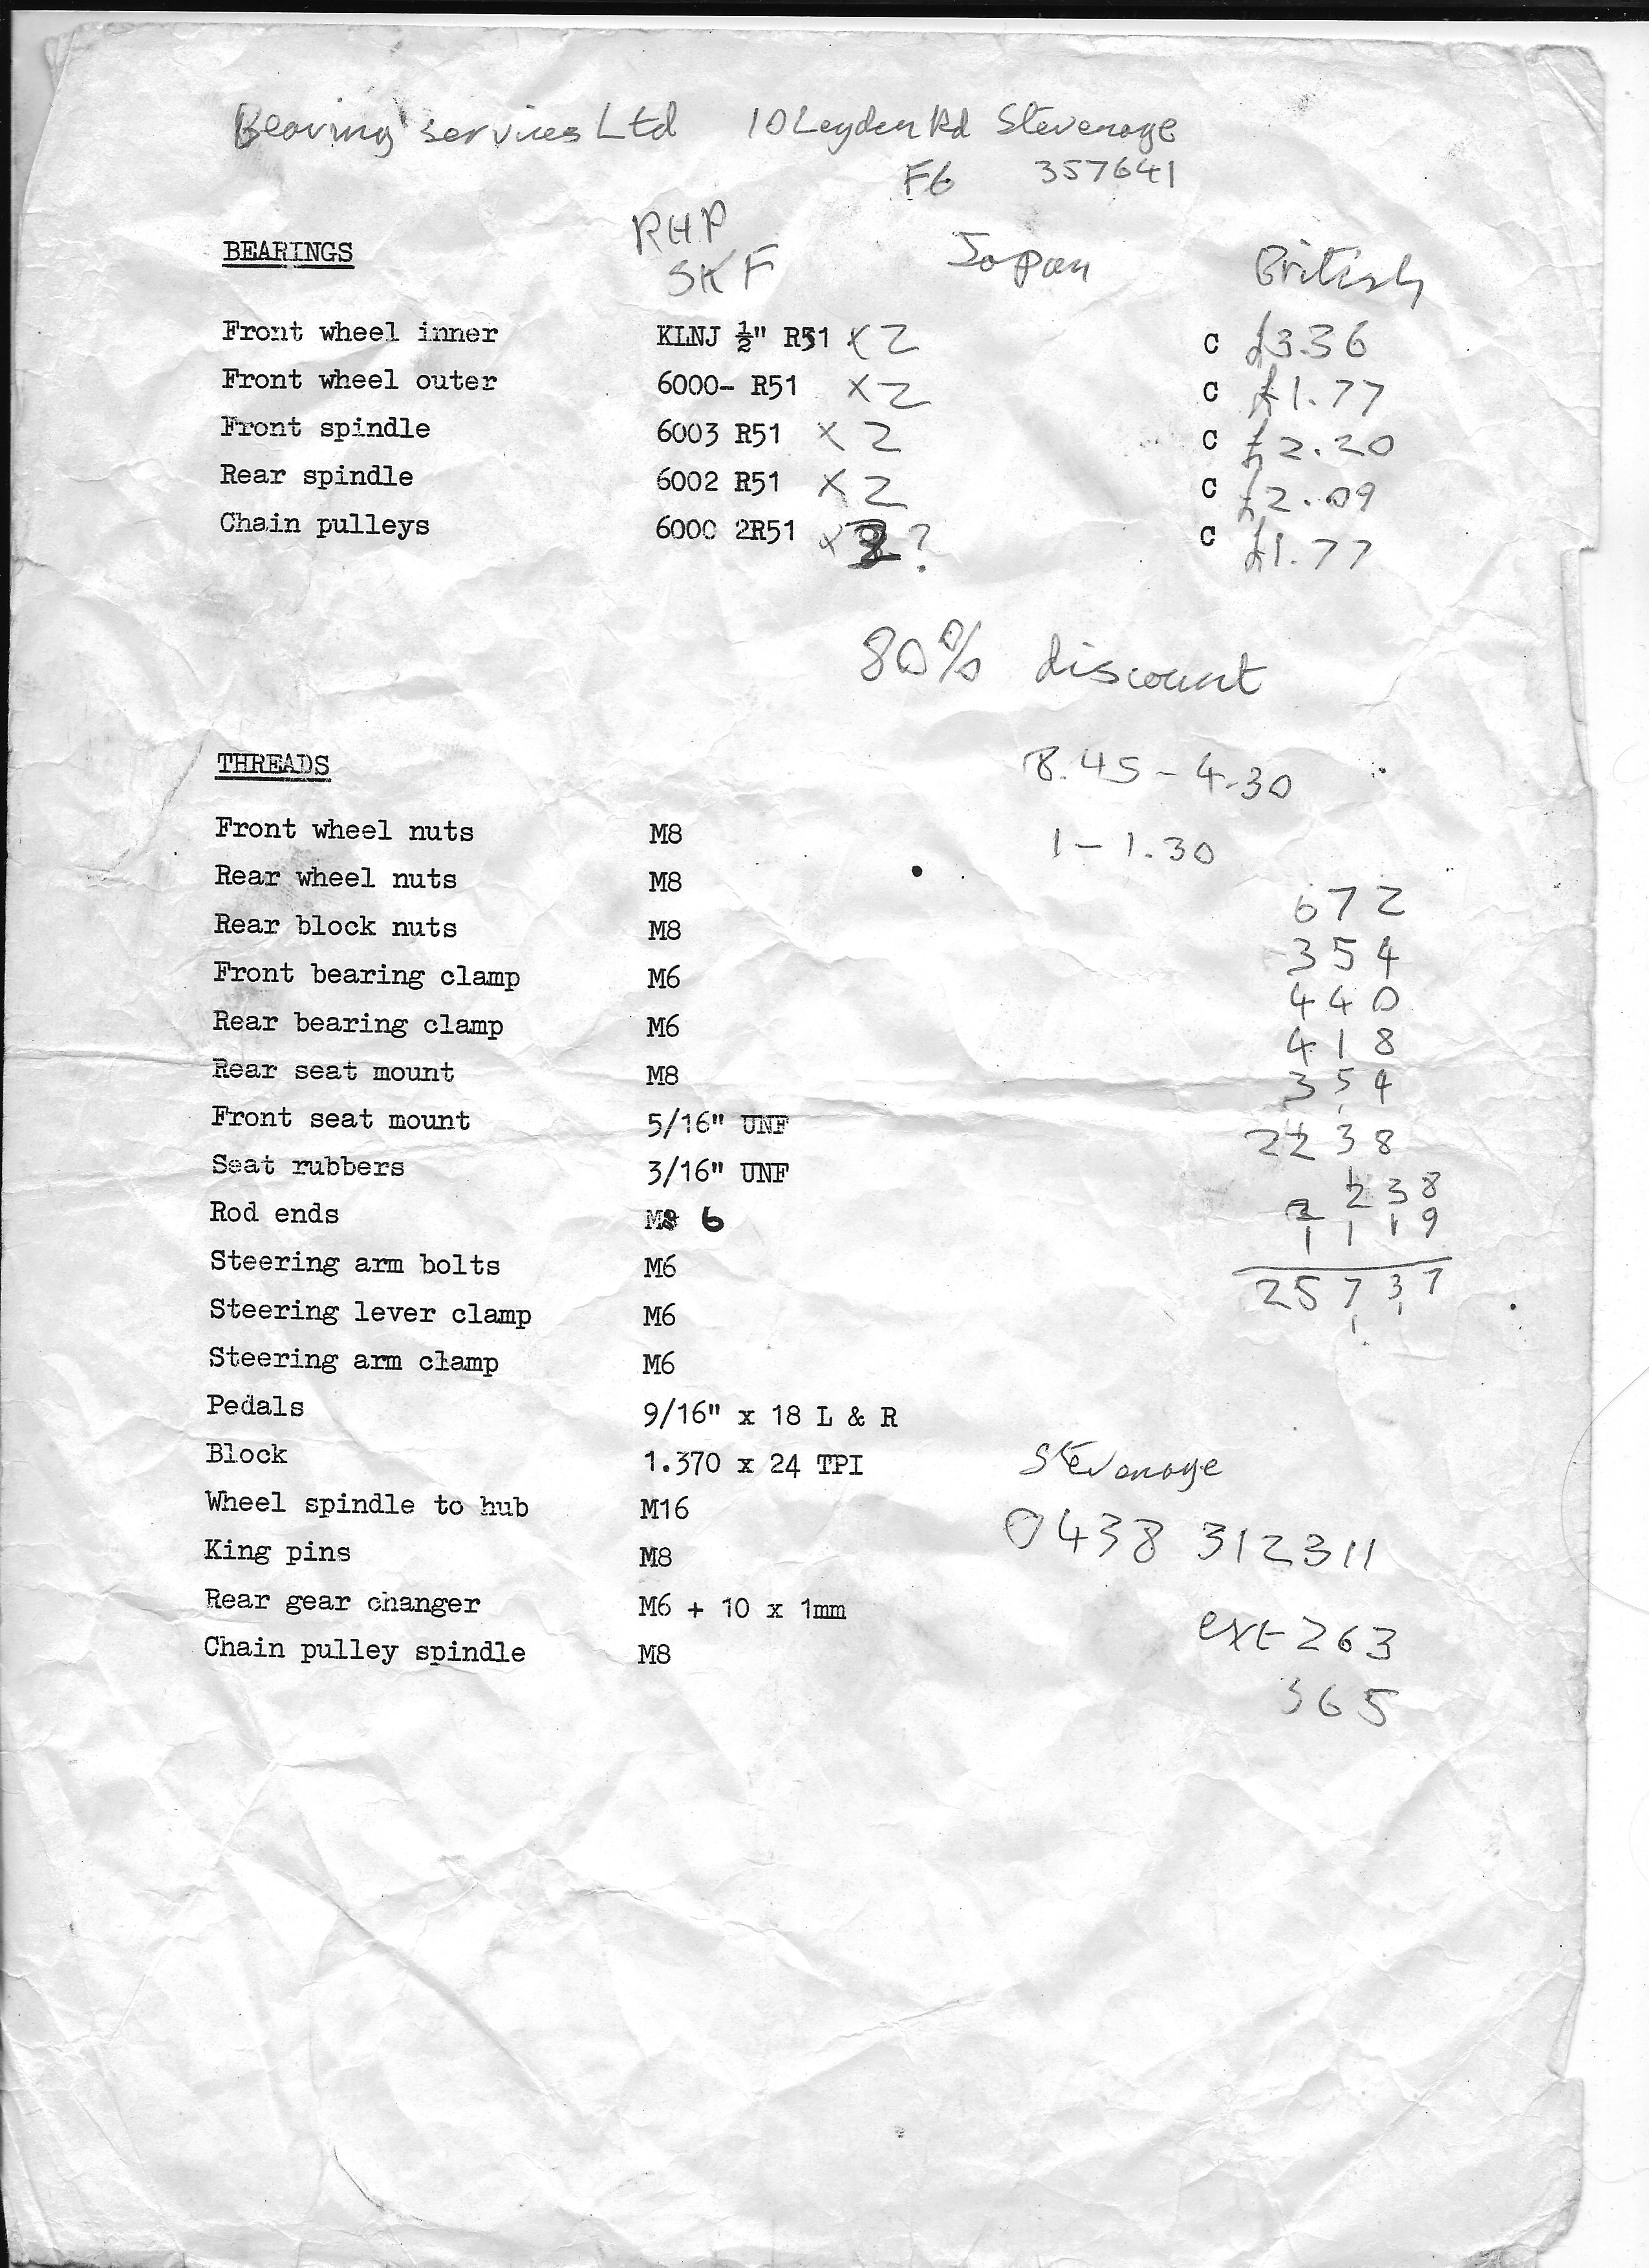 Bearing services Ltd 10 Leyden Rd Stevenage
F6 357641
RHP
BEARINGS SKF Japan British
Front wheel inner KLNJ ½" R51 x2 C £3.36
Front wheel outer 6000- R51 x2 C £1.77
Front spindle 6003 R51 x2 C £2.20
Rear spindle 6002 R51 x2 C £2.09
Chain pulleys 6000 2R51 x2? C £1.77
80% discount
THREADS 8.45 - 4.30
Front wheel nuts M8 1 - 1.30
Rear wheel nuts M8 672
Rear block nuts M8 354
Front bearing clamp M6 440
Rear bearing clamp M6 418
Rear seat mount M8 354
Front seat mount 5/16" UNF 2238
Seat rubbers 3/16" UNF 2238
Rod ends M8 6 1119
Steering arm bolts M6 25737
Steering lever clamp M6
Steering arm clamp M6
Pedals 9/16" x 18 L & R
Block 1.370 x 24 TPI Stevenage
Wheel spindle to hub M16 0438 312311
King pins M8
Rear gear changer M6 + 10 x 1mm ext 263
Chain pulley spindle M8 365